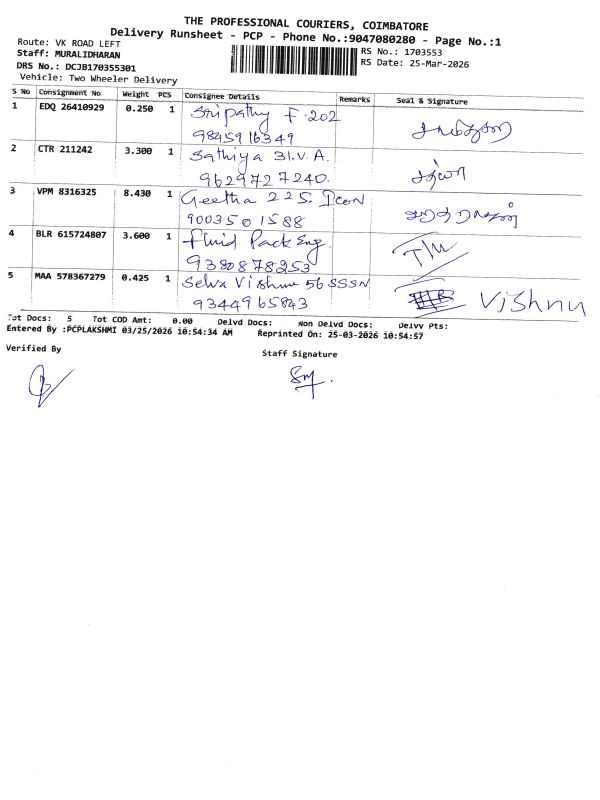 THE PROFESSIONAL COURIERS, COIMBATORE
Delivery Runsheet - PCP - Phone No.:9047080280 - Page No.:1
Route: VK ROAD LEFT
Staff: MURALIDHARAN
DRS No.: DCJB170355301
Vehicle: Two Wheeler Delivery
RS No.: 1703553
RS Date: 25-Mar-2026
S No Consignment No Weight PCS Consignee Details Remarks Seal & Signature
1 EDQ 26410929 0.250 1 Sripathy F-202
9845916349
2 CTR 211242 3.300 1 Sathiya 31.V.A. சத்யா
9629727240.
3 VPM 8316325 8.430 1 Geetha 225. Icon
9003501588
4 BLR 615724807 3.600 1 Fluid Pack Eng.
9380878253
5 MAA 578367279 0.425 1 Selva Vishnu 56 SSSN Vishnu
9344965843
Tot Docs: 5 Tot COD Amt: 0.00 Delvd Docs: Non Delvd Docs: Delvv Pts:
Entered By :PCPLAKSHMI 03/25/2026 10:54:34 AM Reprinted On: 25-03-2026 10:54:57
Verified By
Staff Signature